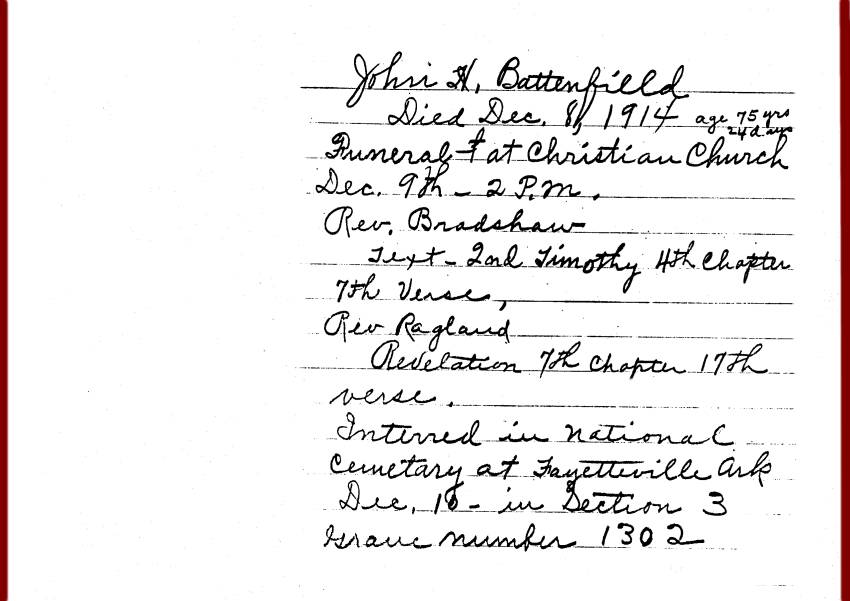 John H. Battenfield
Died Dec. 8, 1914 age 75 yrs
24 days
Funeral at Christian Church
Dec. 9th - 2 P.m.
Rev. Bradshaw
Text - 2nd Timothy 4th Chapter
7th Verse,
Rev Ragland
Revelation 7th Chapter 17th
verse.
Interred in National
Cemetary at Fayetteville Ark
Dec. 10 - in Section 3
Grave number 1302